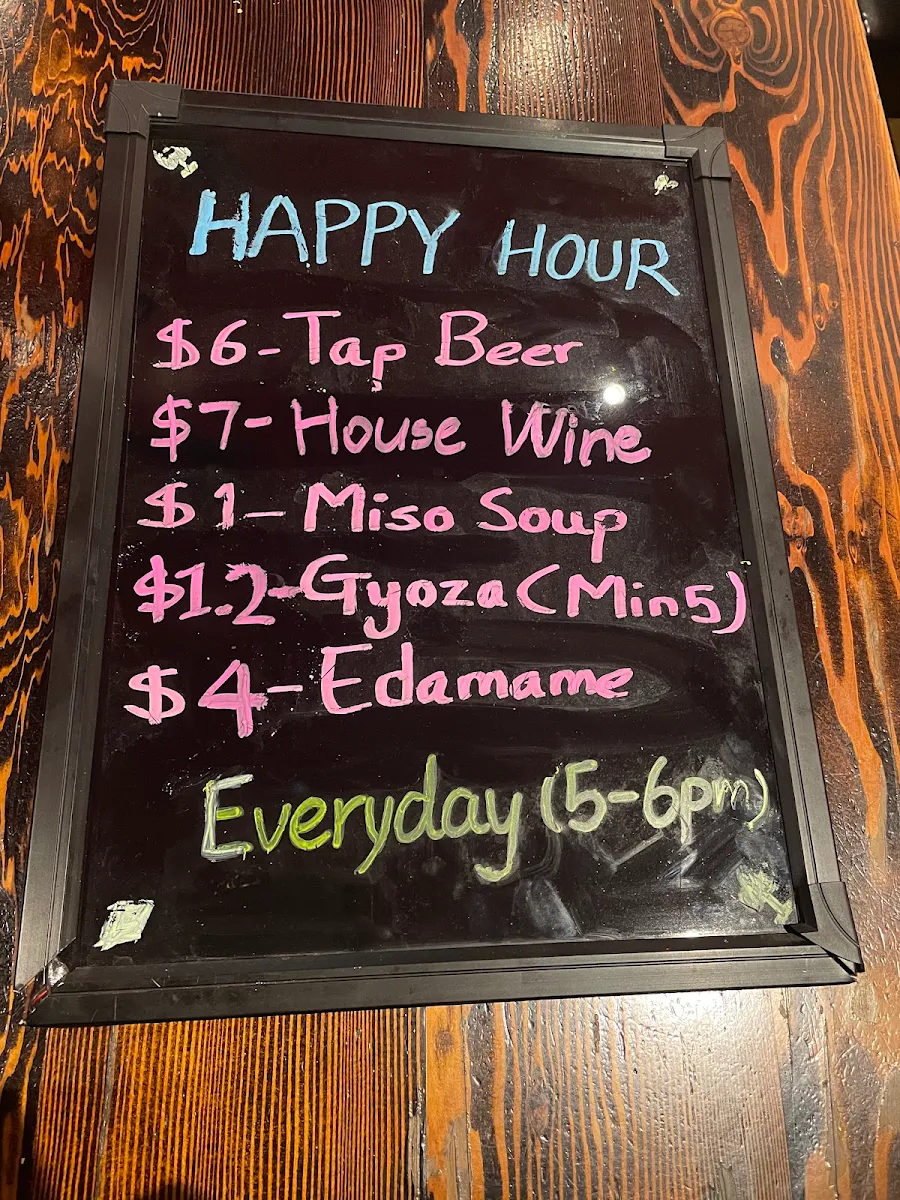 HAPPY HOUR
$6-Tap Beer
$7- House Wine
$1- Miso Soup
$1.2-Gyoza (Min5)
$4- Edamame
Everyday (5-6pm)